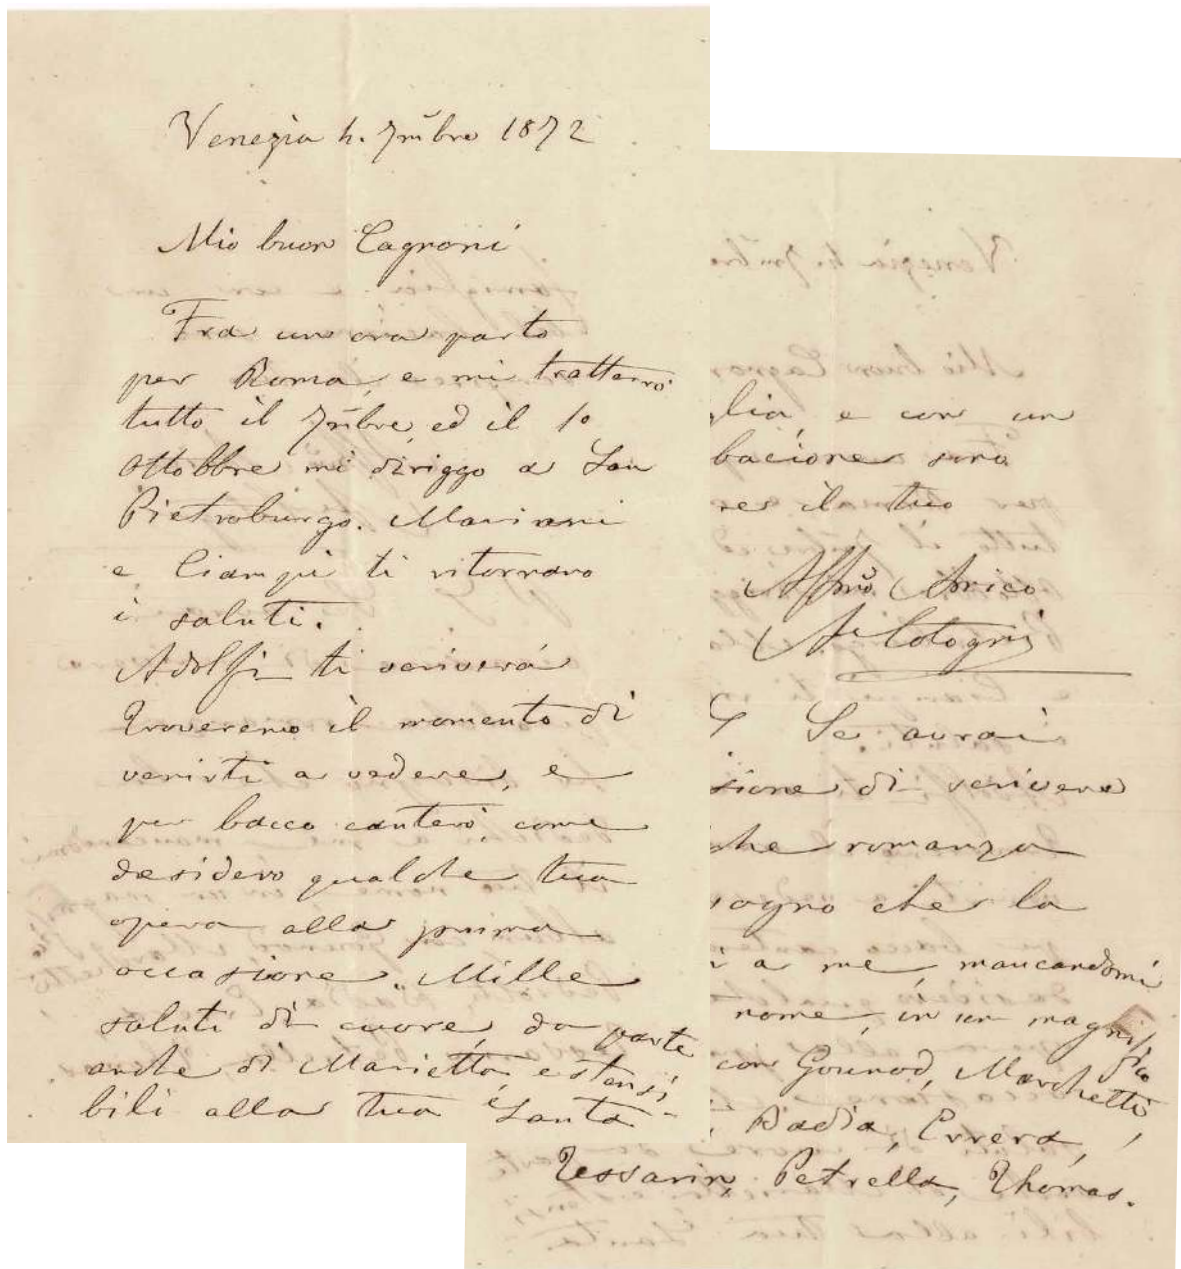 Venezia 4. 7mbre 1872
Mio buon Cagnoni
Fra un ora parto
per Roma, e mi tratterrò
tutto il 7mbre, ed il 1o
Ottobbre mi diriggo a San
Pietroburgo. Mariani
e Ciampi ti ritornano
i saluti.
Adolfi ti scriverà
Troveremo il momento di
venirti a vedere, e
per bacco canterò, come
desidero qualche tua
opera alla prima
occasione. Mille
saluti di cuore, da parte
anche di Marietta estensi-
bili alla tua Santa
glia, e con un
bacione sono
res il tuo
Affmo Amico
A Cotogni
S Se avrai
sione di scrivere
che romanza
sogno che la
i a me mancandomi
nome, in un magnifico
con Gounod, Marchetti,
, Badia, Errera,
Tessarin, Petrella, Thomas.